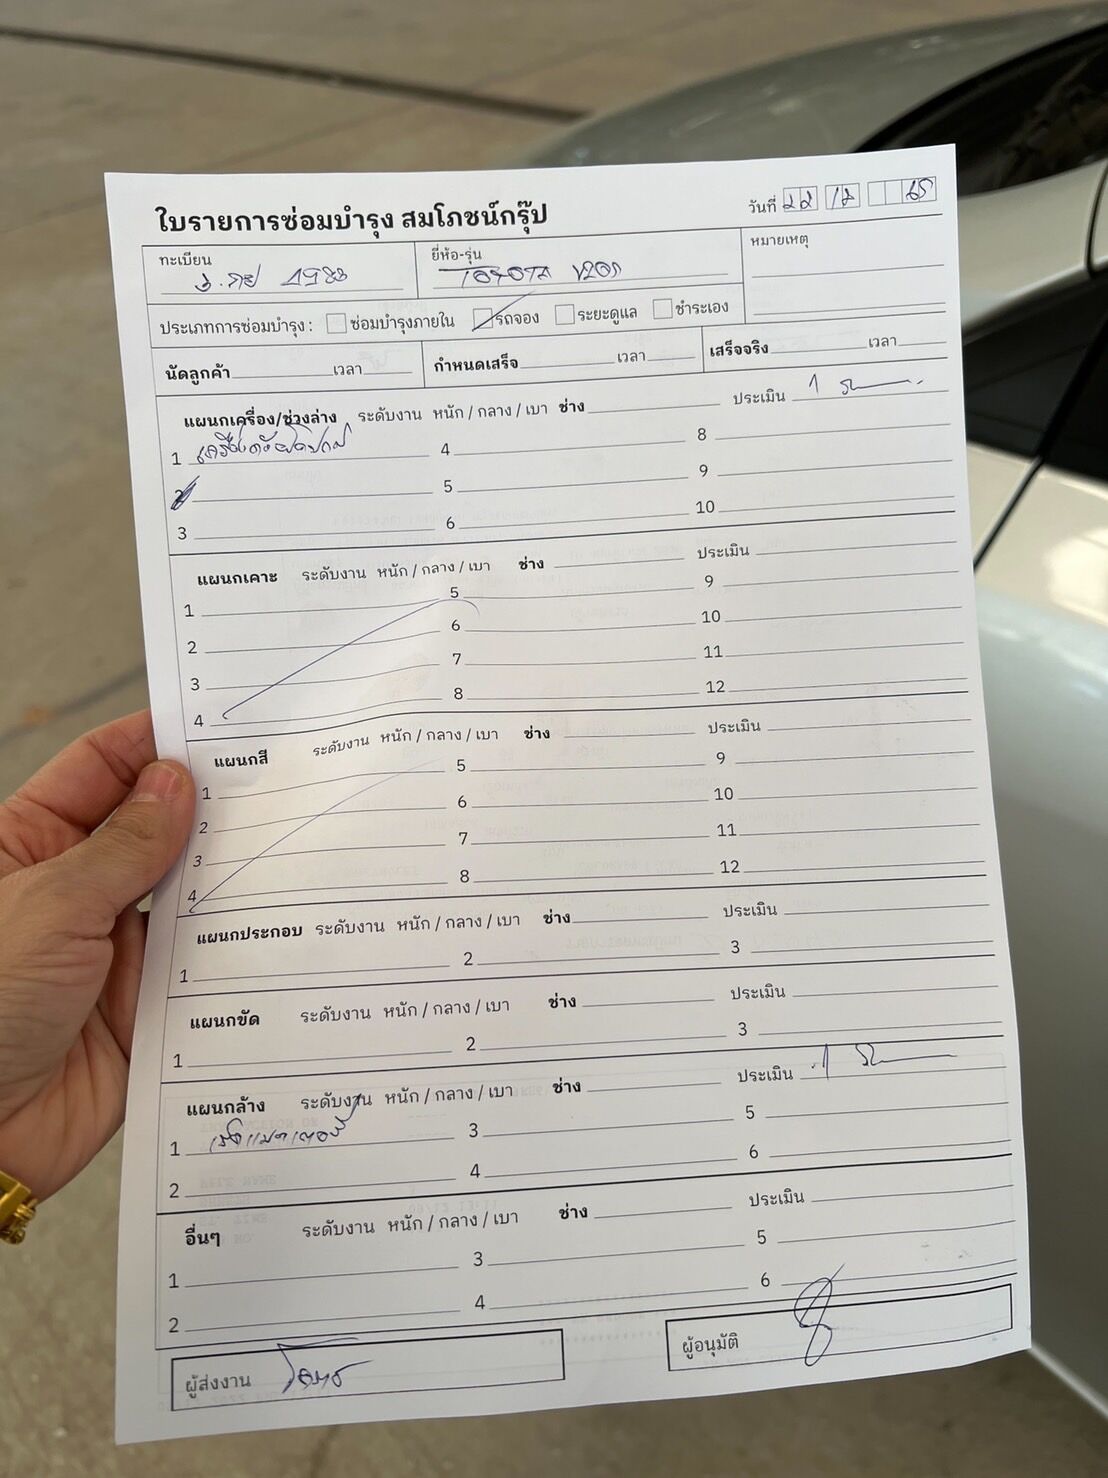 ใบรายการซ่อมบำรุง สมโภชน์กรุ๊ป
วันที่ 22 12 65
ทะเบียน
ยี่ห้อ-รุ่น TOYOTA
หมายเหตุ
ประเภทการซ่อมบำรุง : ซ่อมบำรุงภายใน รถจอง ระยะดูแล ชำระเอง
นัดลูกค้า เวลา กำหนดเสร็จ เวลา เสร็จจริง เวลา
แผนกเครื่อง/ช่วงล่าง ระดับงาน หนัก / กลาง / เบา ช่าง ประเมิน 1 วัน
1 4 8
2 5 9
3 6 10
แผนกเคาะ ระดับงาน หนัก / กลาง / เบา ช่าง ประเมิน
1 5 9
2 6 10
3 7 11
4 8 12
แผนกสี ระดับงาน หนัก / กลาง / เบา ช่าง ประเมิน
1 5 9
2 6 10
3 7 11
4 8 12
แผนกประกอบ ระดับงาน หนัก / กลาง / เบา ช่าง ประเมิน
1 2 3
แผนกขัด ระดับงาน หนัก / กลาง / เบา ช่าง ประเมิน
1 2 3
แผนกล้าง ระดับงาน หนัก / กลาง / เบา ช่าง ประเมิน 1 วัน
1 3 5
2 4 6
อื่นๆ ระดับงาน หนัก / กลาง / เบา ช่าง ประเมิน
1 3 5
2 4 6
ผู้ส่งงาน
ผู้อนุมัติ